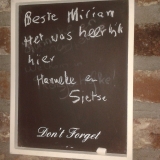 Beste Mirian
Het was heerlijk
hier
Hanneke en
Sietse
Don't Forget